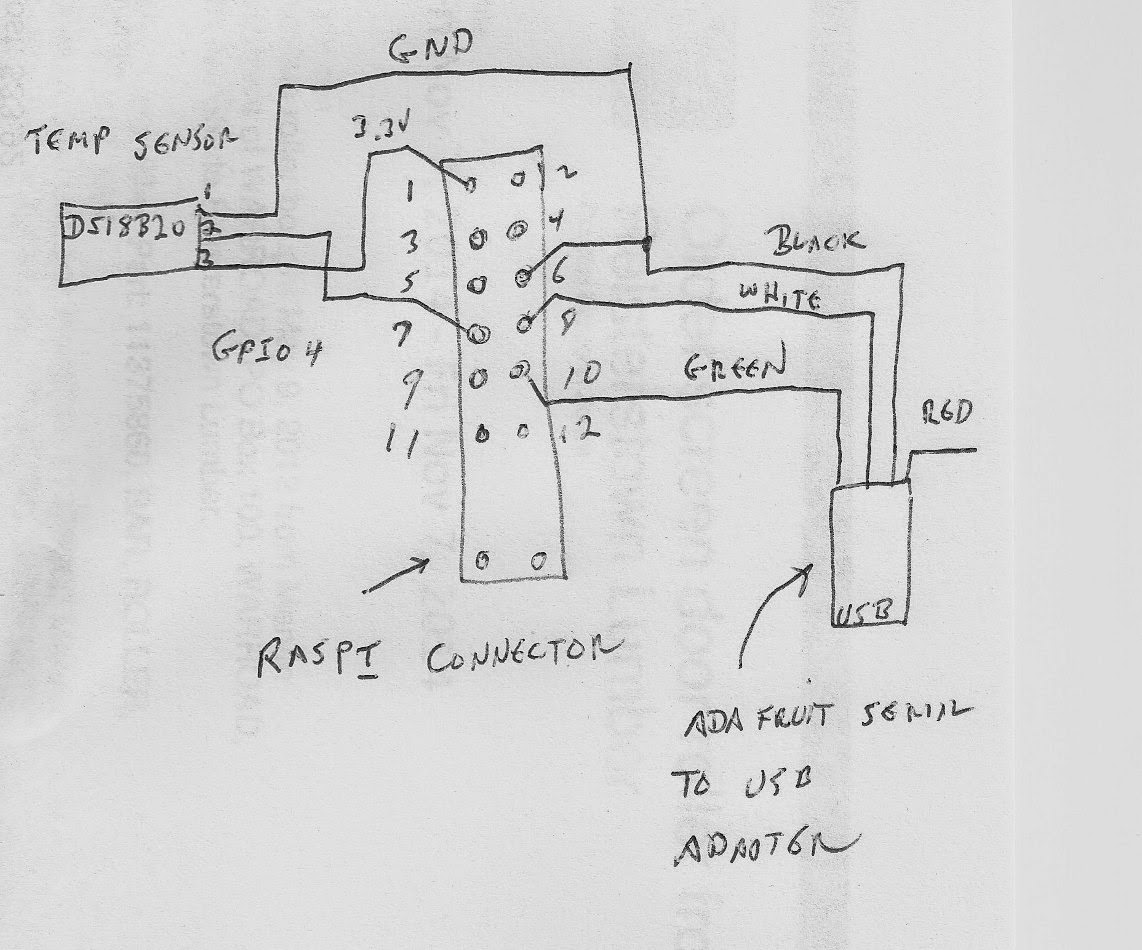 GND
TEMP SENSOR
3.3V
1
2
1
DS18B20
2
3
3
4
5
6
BLACK
WHITE
GPIO 4
7
8
9
10
GREEN
11
12
RED
USB
RASPI CONNECTOR
ADAFRUIT SERIAL
TO USB
ADAPTER